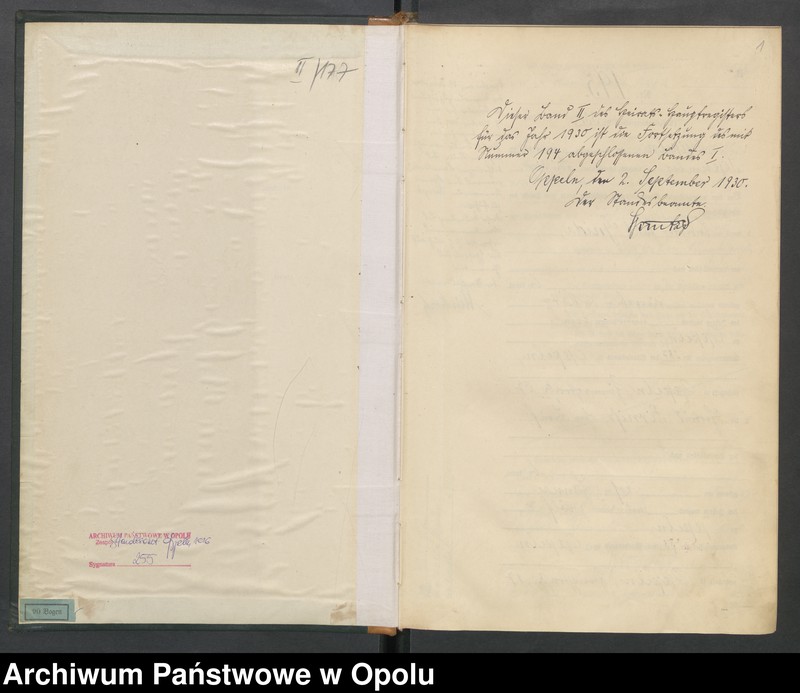 II/177
ARCHIWUM PAŃSTWOWE W OPOLU
Zespół
Sygnatura 255
90 Bogen
1
Dieser Band II des Heirats-Hauptregisters
für das Jahr 1930 ist die Fortsetzung des mit
Nummer 194 abgeschlossenen Bandes I.
Oppeln, den 2. September 1930.
Der Standesbeamte.
Archiwum Państwowe w Opolu